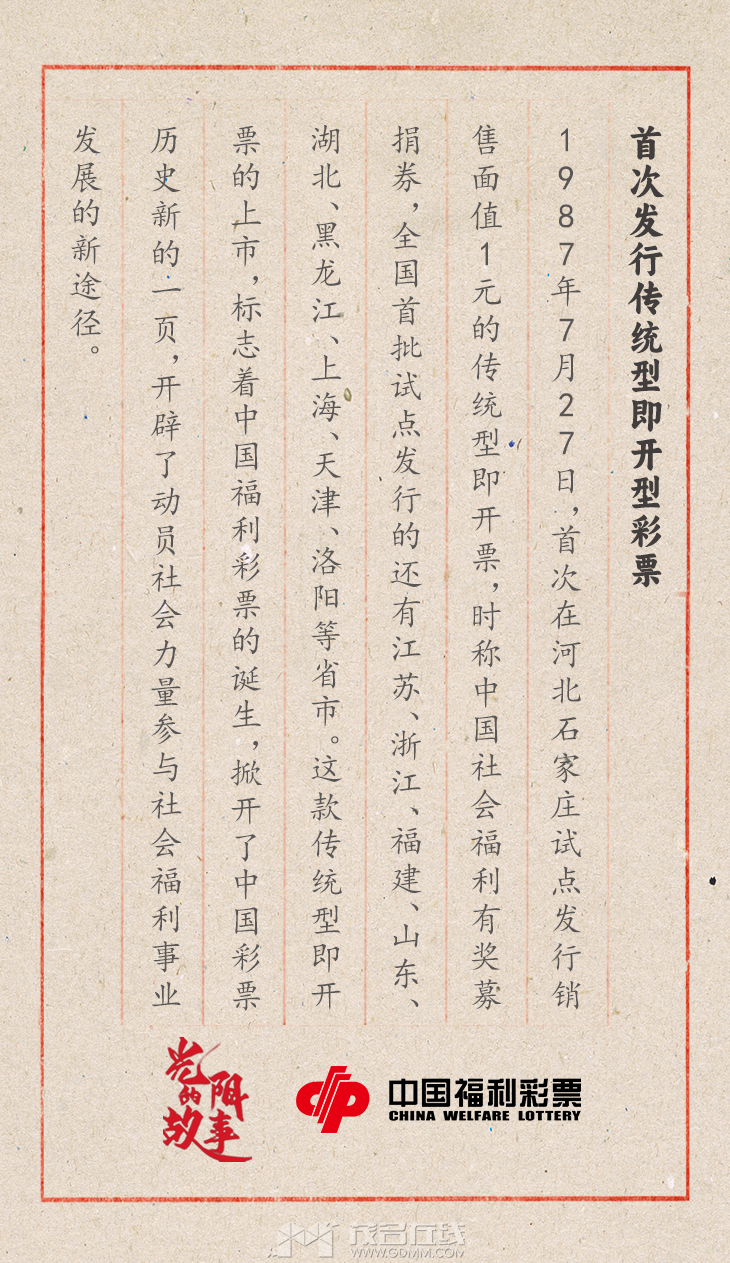 首次发行传统型即开型彩票
1987年7月27日，首次在河北石家庄试点发行销
售面值1元的传统型即开票，时称中国社会福利有奖募
捐券，全国首批试点发行的还有江苏、浙江、福建、山东、
湖北、黑龙江、上海、天津、洛阳等省市。这款传统型即开
票的上市，标志着中国福利彩票的诞生，掀开了中国彩票
历史新的一页，开辟了动员社会力量参与社会福利事业
发展的新途径。
光阴的故事
中国福利彩票
CHINA WELFARE LOTTERY
茂名在线
WWW.GDMM.COM